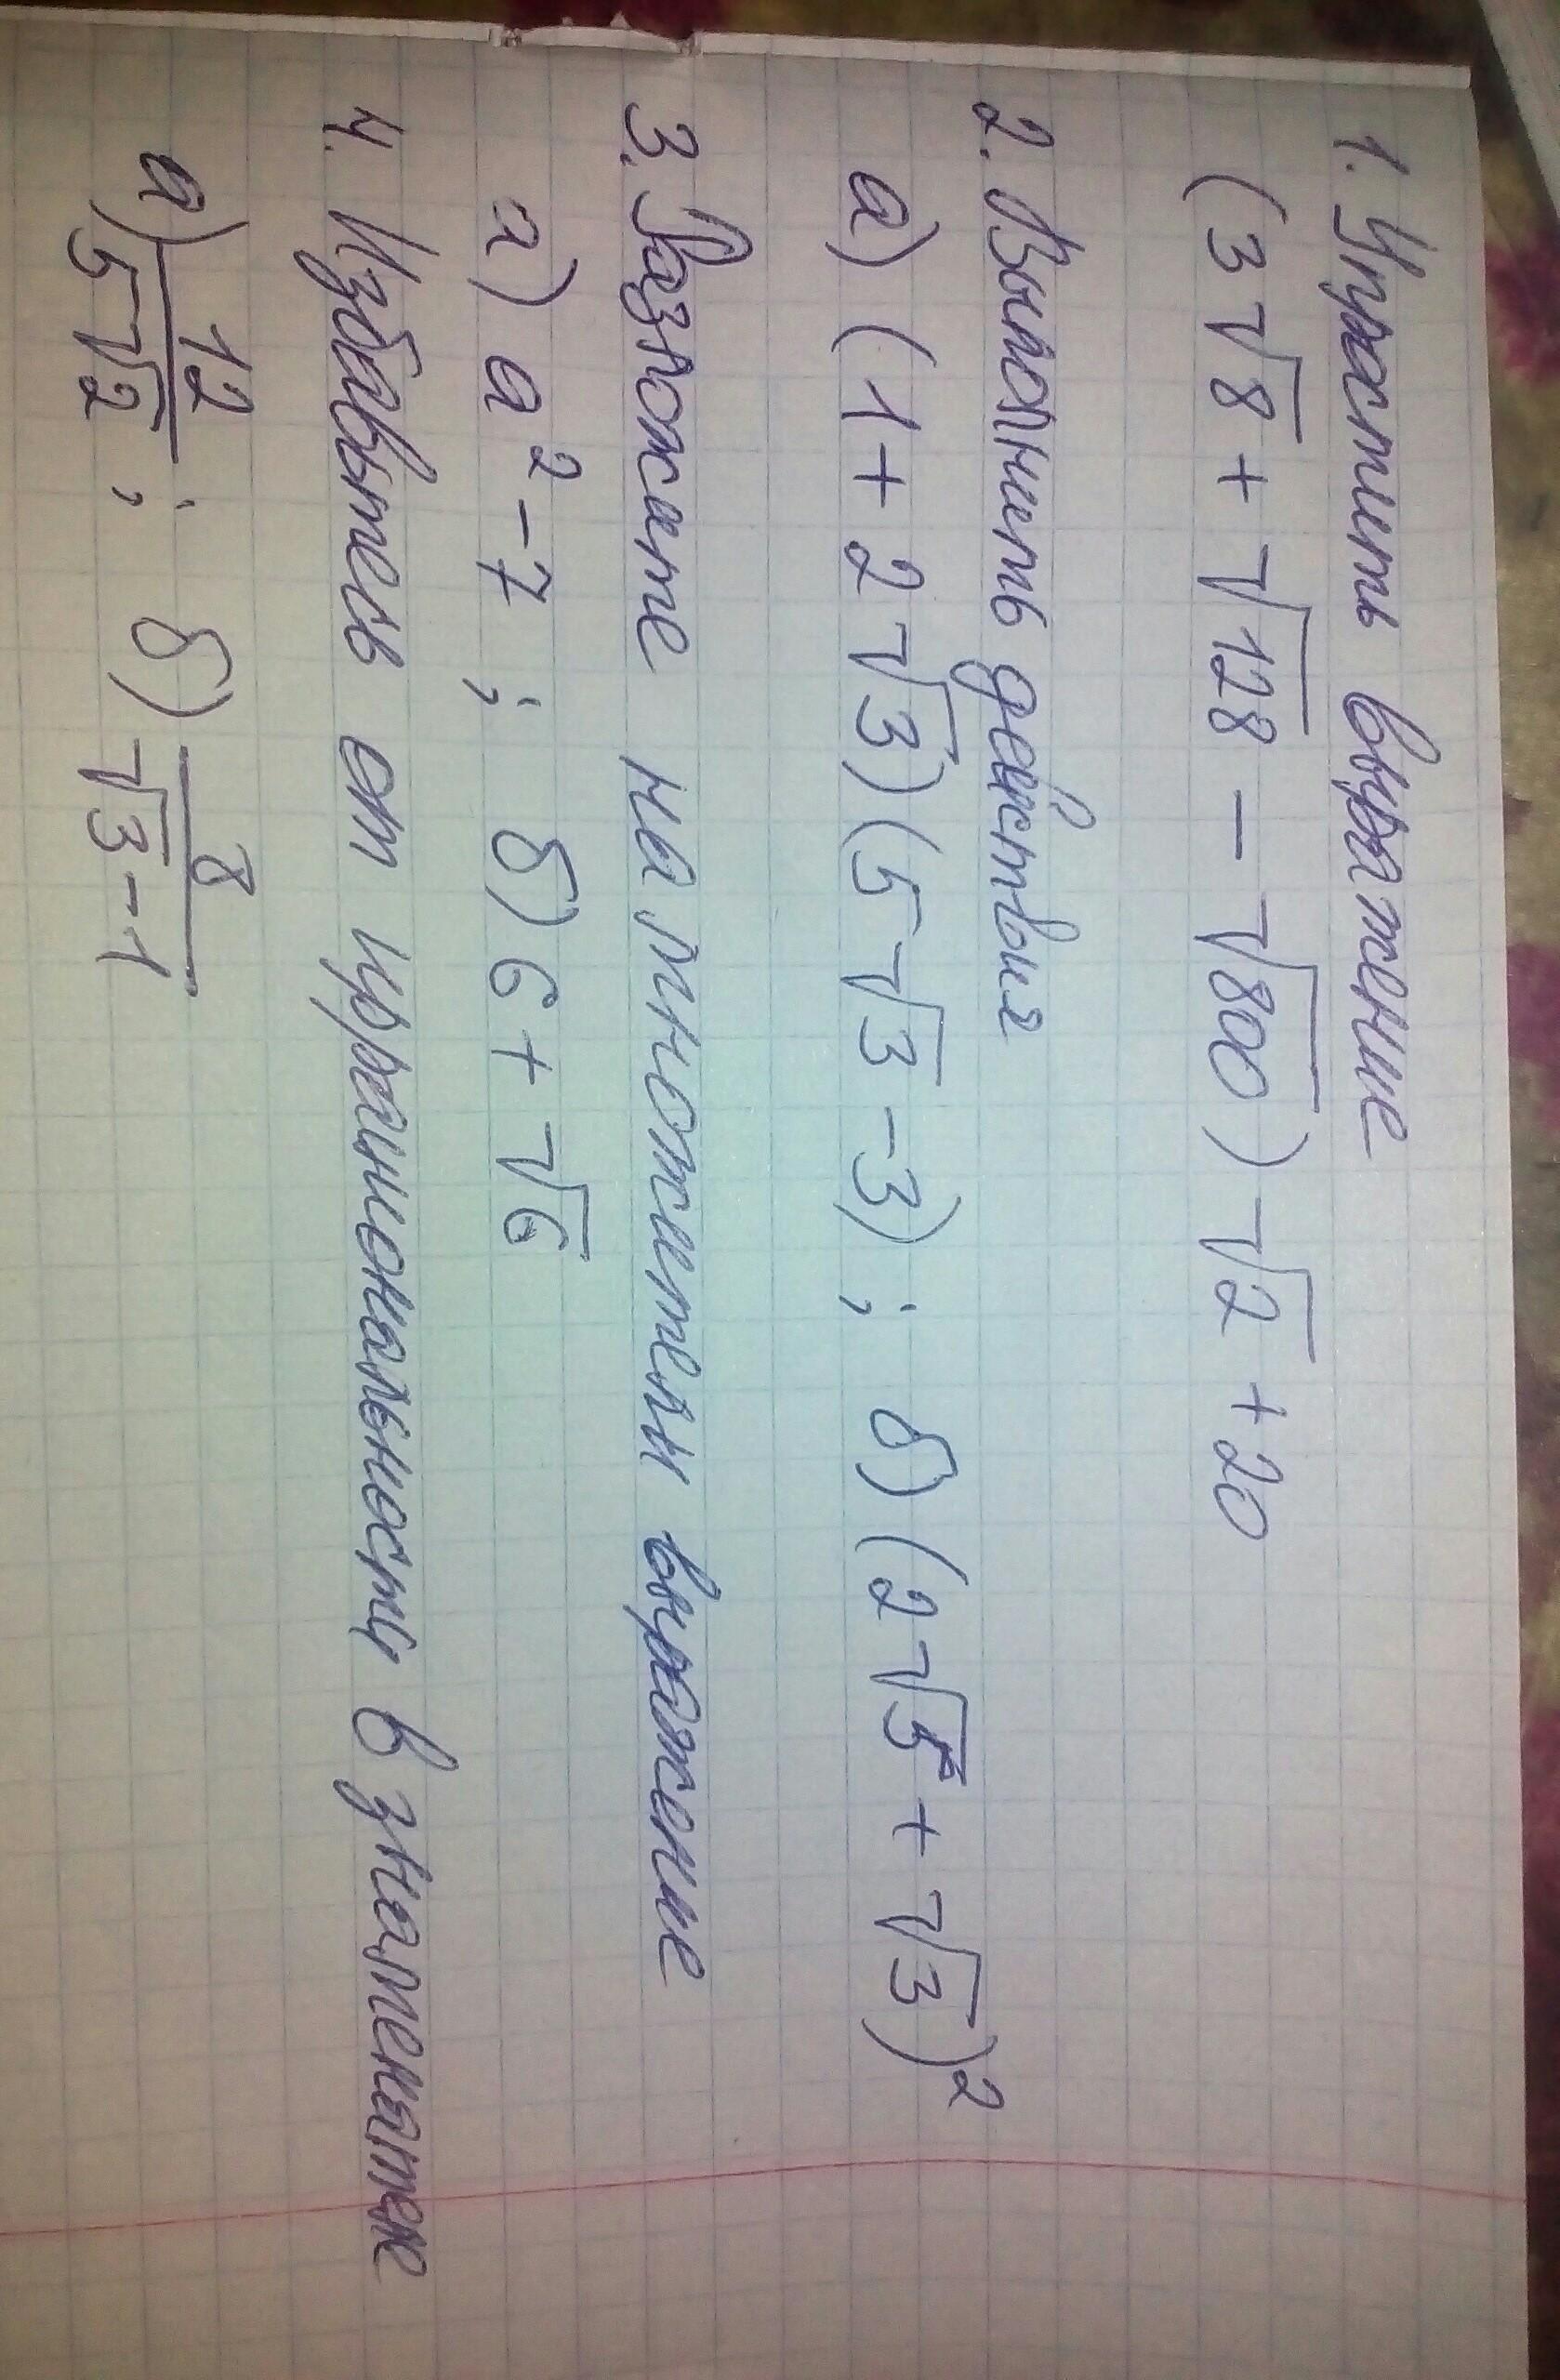 1. Упростить выражение
(3√8 + √128 - √800) √2 + 20
2. Выполнить действия
а) (1 + 2√3)(5√3 - 3) ; б) (2√5 + √3)²
3. Разложите на множители выражение
а) a² - 7 ; б) 6 + √6
4. Избавьтесь от иррациональности в знаменателе
а) 12/5√2 ; б) 8/√3 - 1